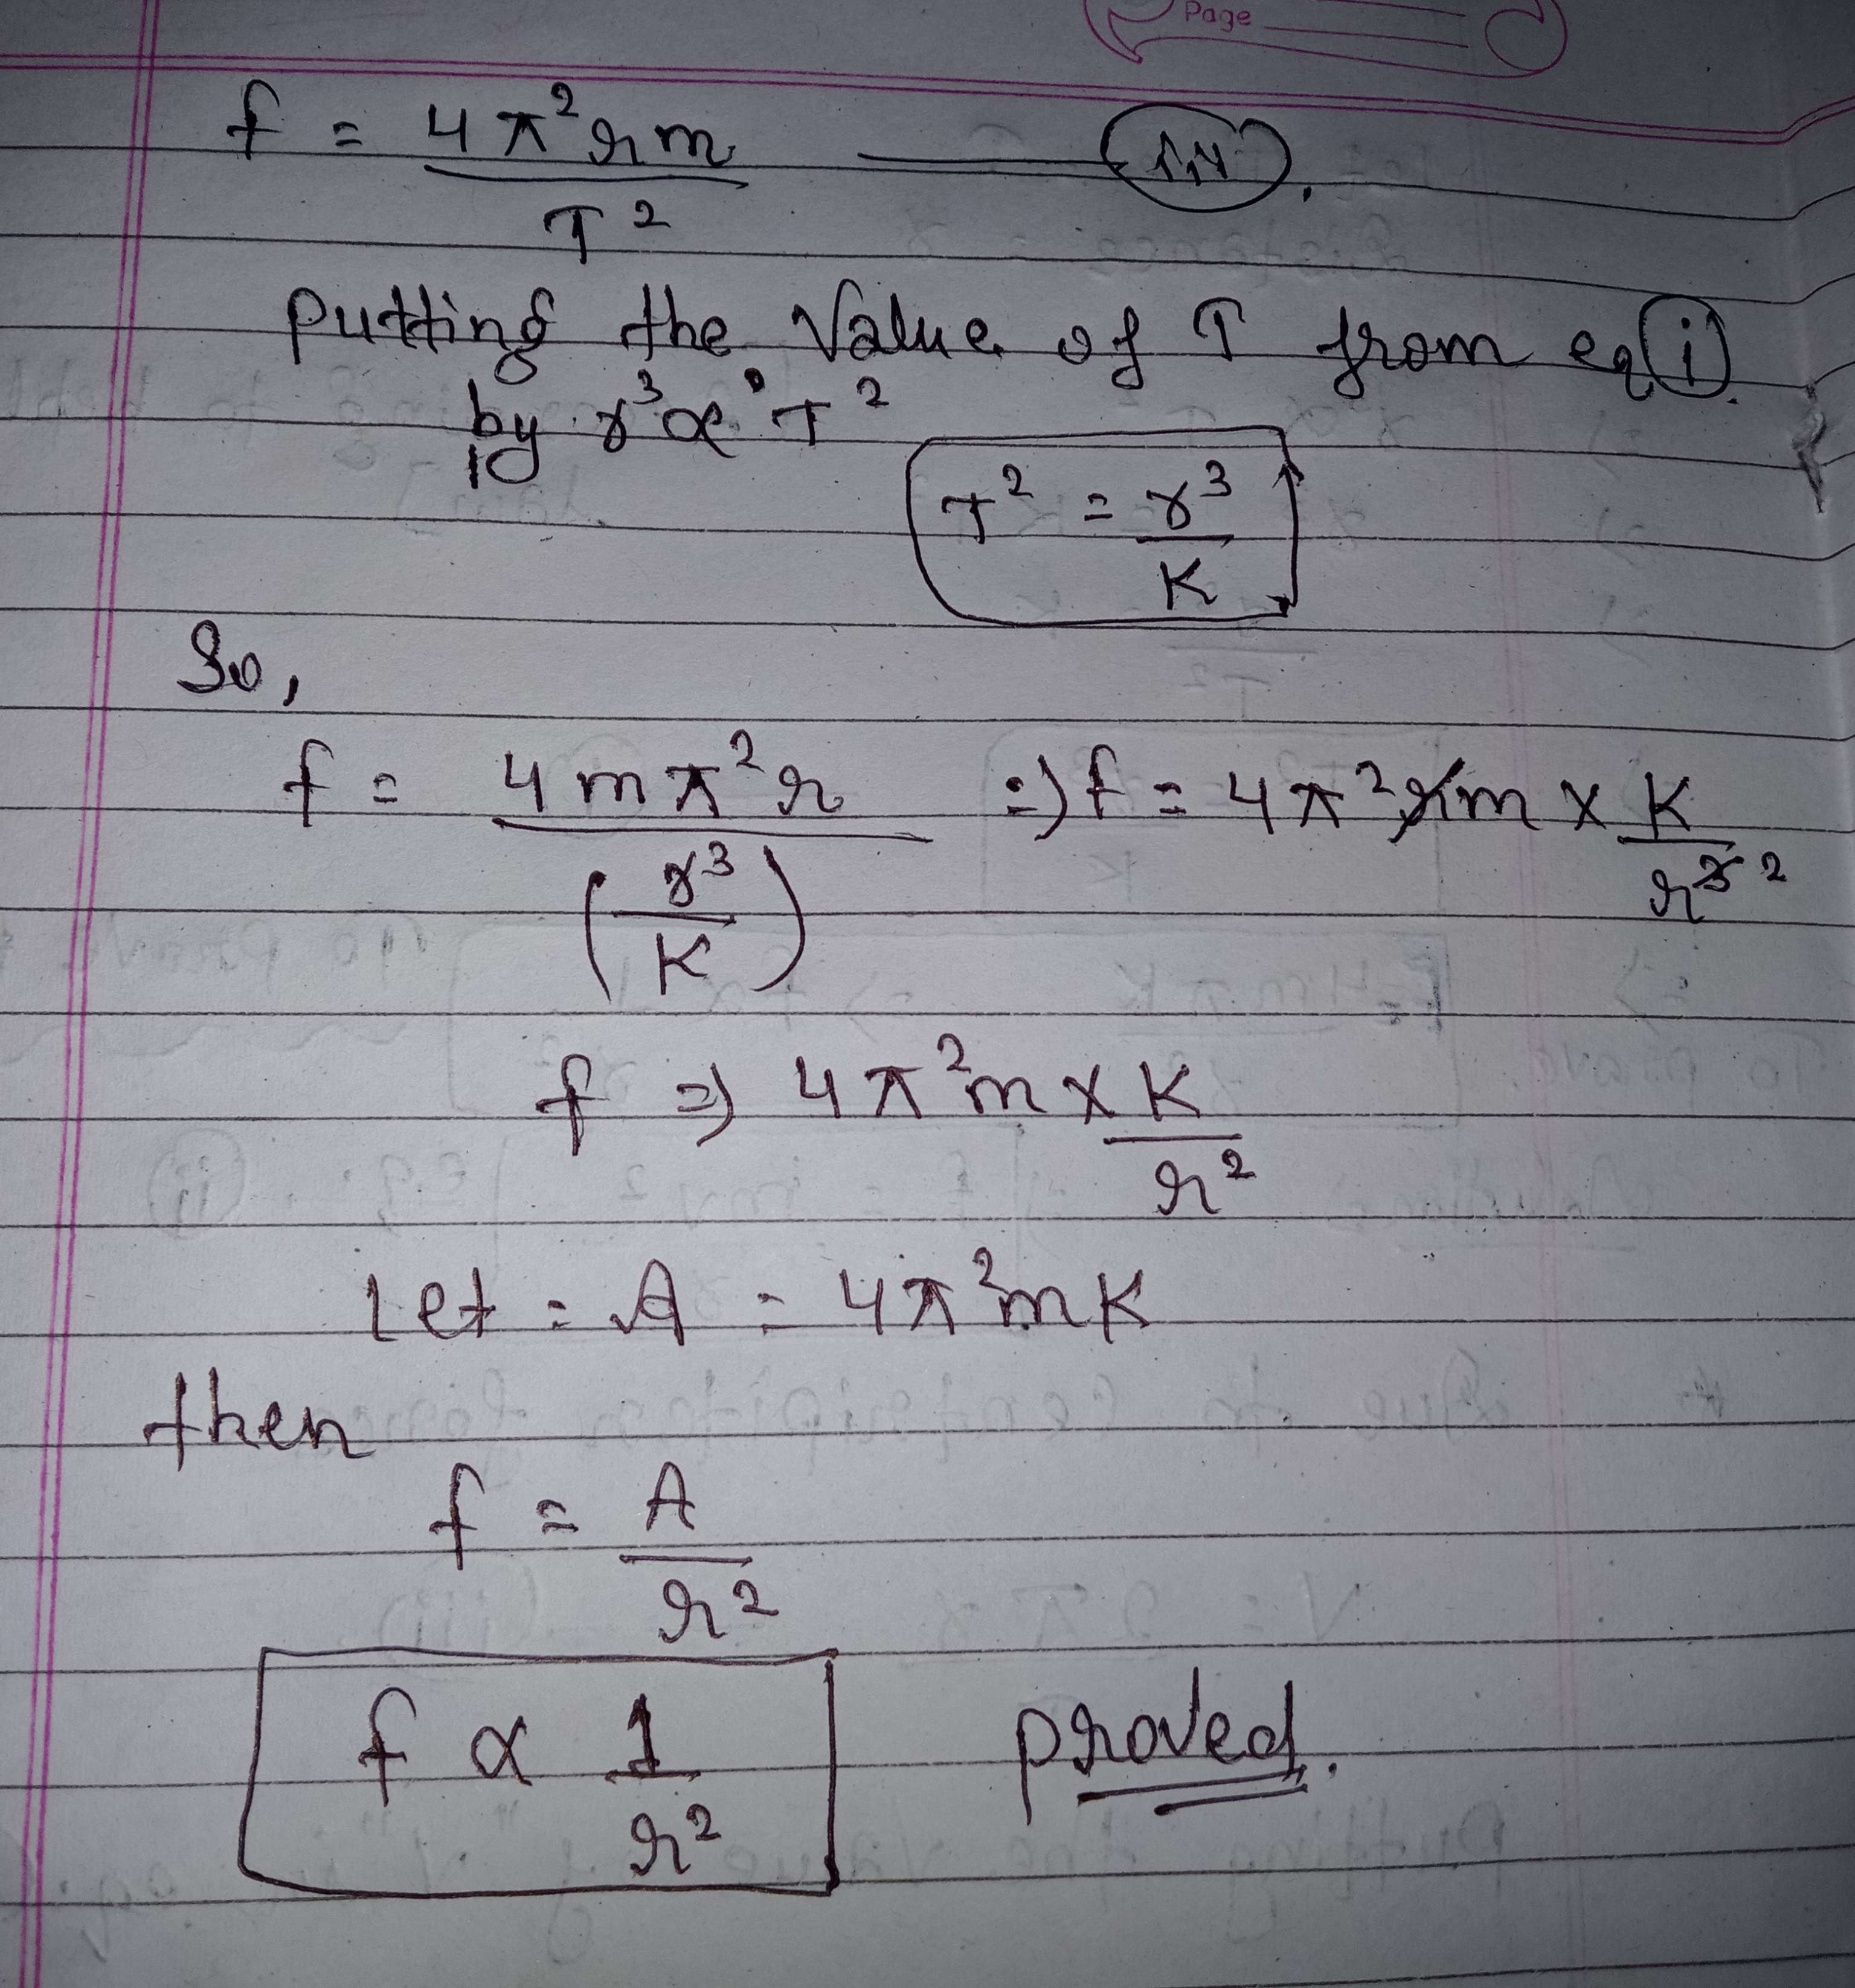 Page
f = 4π²rm / T² — (iv).
putting the Value of T from eq (i).
by r³ ∝ T²
T² = r³ / K
So,
f = 4mπ²r / (r³ / K) ⇒ f = 4π²rm × K / r³ 2
f ⇒ 4π²m × K / r²
Let = A = 4π²mK
then
f = A / r²
f ∝ 1 / r² proved.